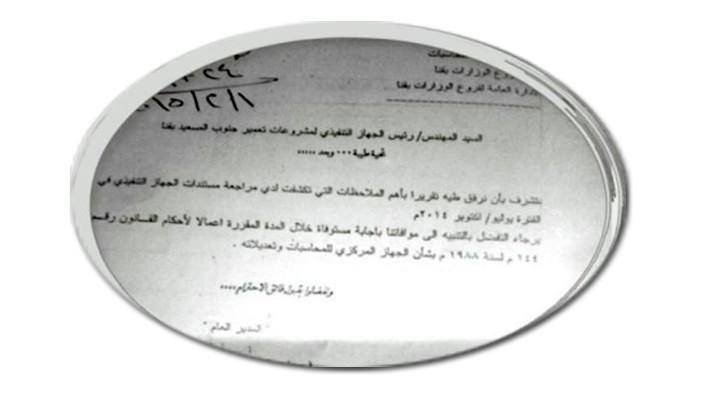 فروع الوزارات بقنا
الإدارة العامة لفروع الوزارات بقنا
٢٠١٥/٢/١
السيد المهندس/ رئيس الجهاز التنفيذي لمشروعات تعمير جنوب الصعيد بقنا
تحية طيبة ٠٠٠ وبعد ٠٠٠٠٠
نتشرف بأن نرفق طيه تقريرا بأهم الملاحظات التي تكشفت لدي مراجعة مستندات الجهاز التنفيذي في
الفترة يوليو/ اكتوبر ٢٠١٤م
برجاء التفضل بالتنبيه الى موافاتنا باجابة مستوفاة خلال المدة المقررة اعمالا لأحكام القانون رقم
١٤٤ م لسنة ١٩٨٨ م بشأن الجهاز المركزي للمحاسبات وتعديلاته .
وتفضلوا بقبول فائق الاحترام ٠٠٠٠
" المدير العام "